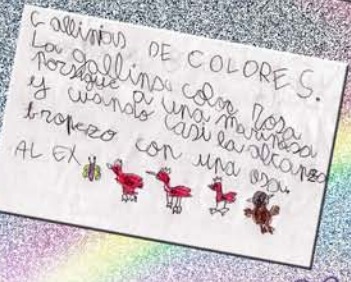 Gallinias DE COLORES.
La gallina color rosa
persigue a una mariposa
y cuando casi la alcanza
tropezo con una osa.
ALEX